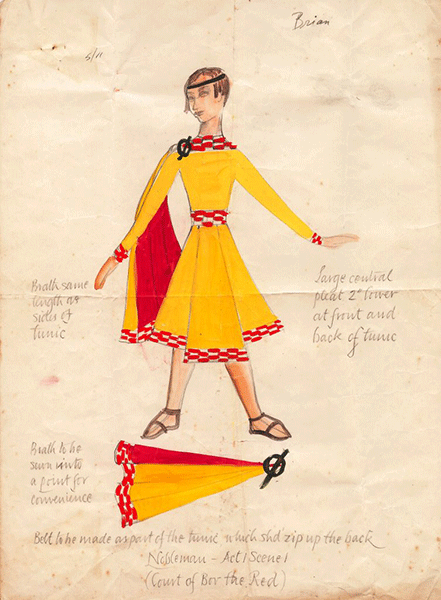 Brian
5/11
Brath same
length as
sides of
tunic
Large central
pleat 2" lower
at front and
back of tunic
Brath to be
sewn into
a point for
convenience
Belt to be made as part of the tunic which shd zip up the back
Nobleman - Act 1 Scene 1
(Court of Bor the Red)